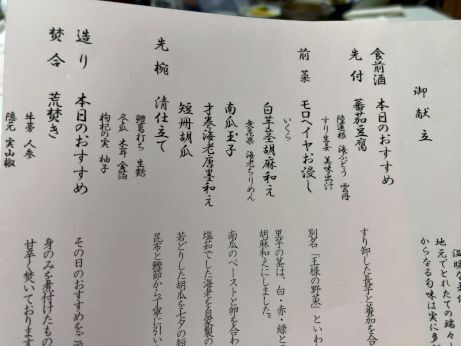 御献立
食前酒 本日のおすすめ
先付 蕃茄豆腐
陸蓮根 海ぶどう 雲丹
すり生姜 美味出汁
すり卸した長芋と蕃茄を合わ
前菜 モロヘイヤお浸し
いくら
別名「王様の野菜」といわ
白芋茎胡麻和え
海老ちりめん
里芋の茎は、白・赤・緑と
胡麻和えにしました。
南瓜玉子
南瓜のペーストと卵を合わ
才巻海老唐墨和え
塩茹でした海老を自家製の
短冊胡瓜
若どりした胡瓜を七夕の短
先椀 清仕立て
鱧葛打ち 生麩
冬瓜 木耳
枸杞の実 柚子
昆布と鰹節から丁寧に引い
造り 本日のおすすめ
その日のおすすめをご
焚合 荒焚き
牛蒡 人参
隠元 実山椒
身のみを煮付けたもの
甘辛く焚いております
地元でとれたての瑞々
からなる旬味は実に多